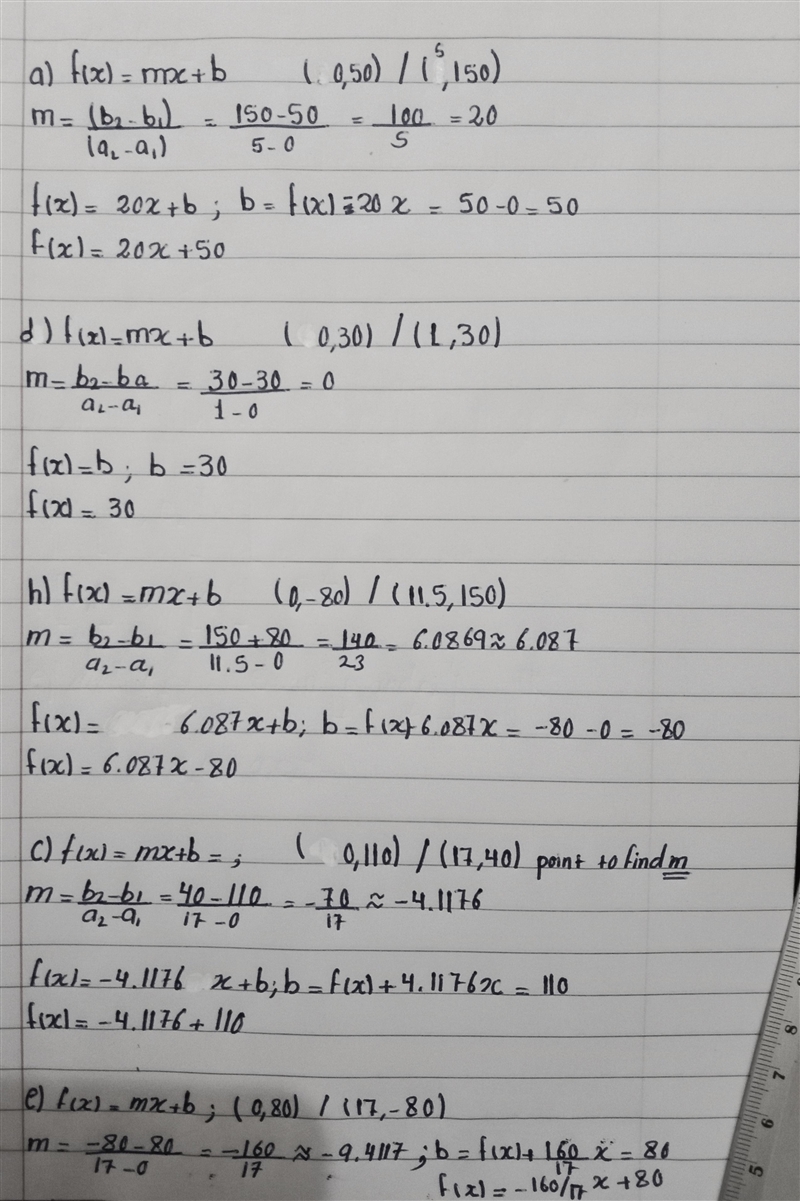 a) f(x) = mx+b ( 0,50) / (5,150)
m = (b₂-b₁)/(a₂-a₁) = 150-50/5-0 = 100/5 = 20
f(x) = 20x+b ; b = f(x)-20x = 50-0 = 50
f(x) = 20x+50
d) f(x) = mx+b ( 0,30) / (1,30)
m = b₂-ba/a₂-a₁ = 30-30/1-0 = 0
f(x) = b ; b = 30
f(x) = 30
h) f(x) = mx+b (0,-80) / (11.5,150)
m = b₂-b₁/a₂-a₁ = 150+80/11.5-0 = 140/23 = 6.0869 ≈ 6.087
f(x) = 6.087x+b; b = f(x)-6.087x = -80-0 = -80
f(x) = 6.087x-80
c) f(x) = mx+b = ; ( 0,110) / (17,40) point to find m
m = b₂-b₁/a₂-a₁ = 40-110/17-0 = -70/17 ≈ -4.1176
f(x) = -4.1176 x+b; b = f(x)+4.1176x = 110
f(x) = -4.1176+110
e) f(x) = mx+b ; (0,80) / (17,-80)
m = -80-80/17-0 = -160/17 ≈ -9.4117 ; b = f(x)+160/17 x = 80
f(x) = -160/17 x+80
8
7
6
5